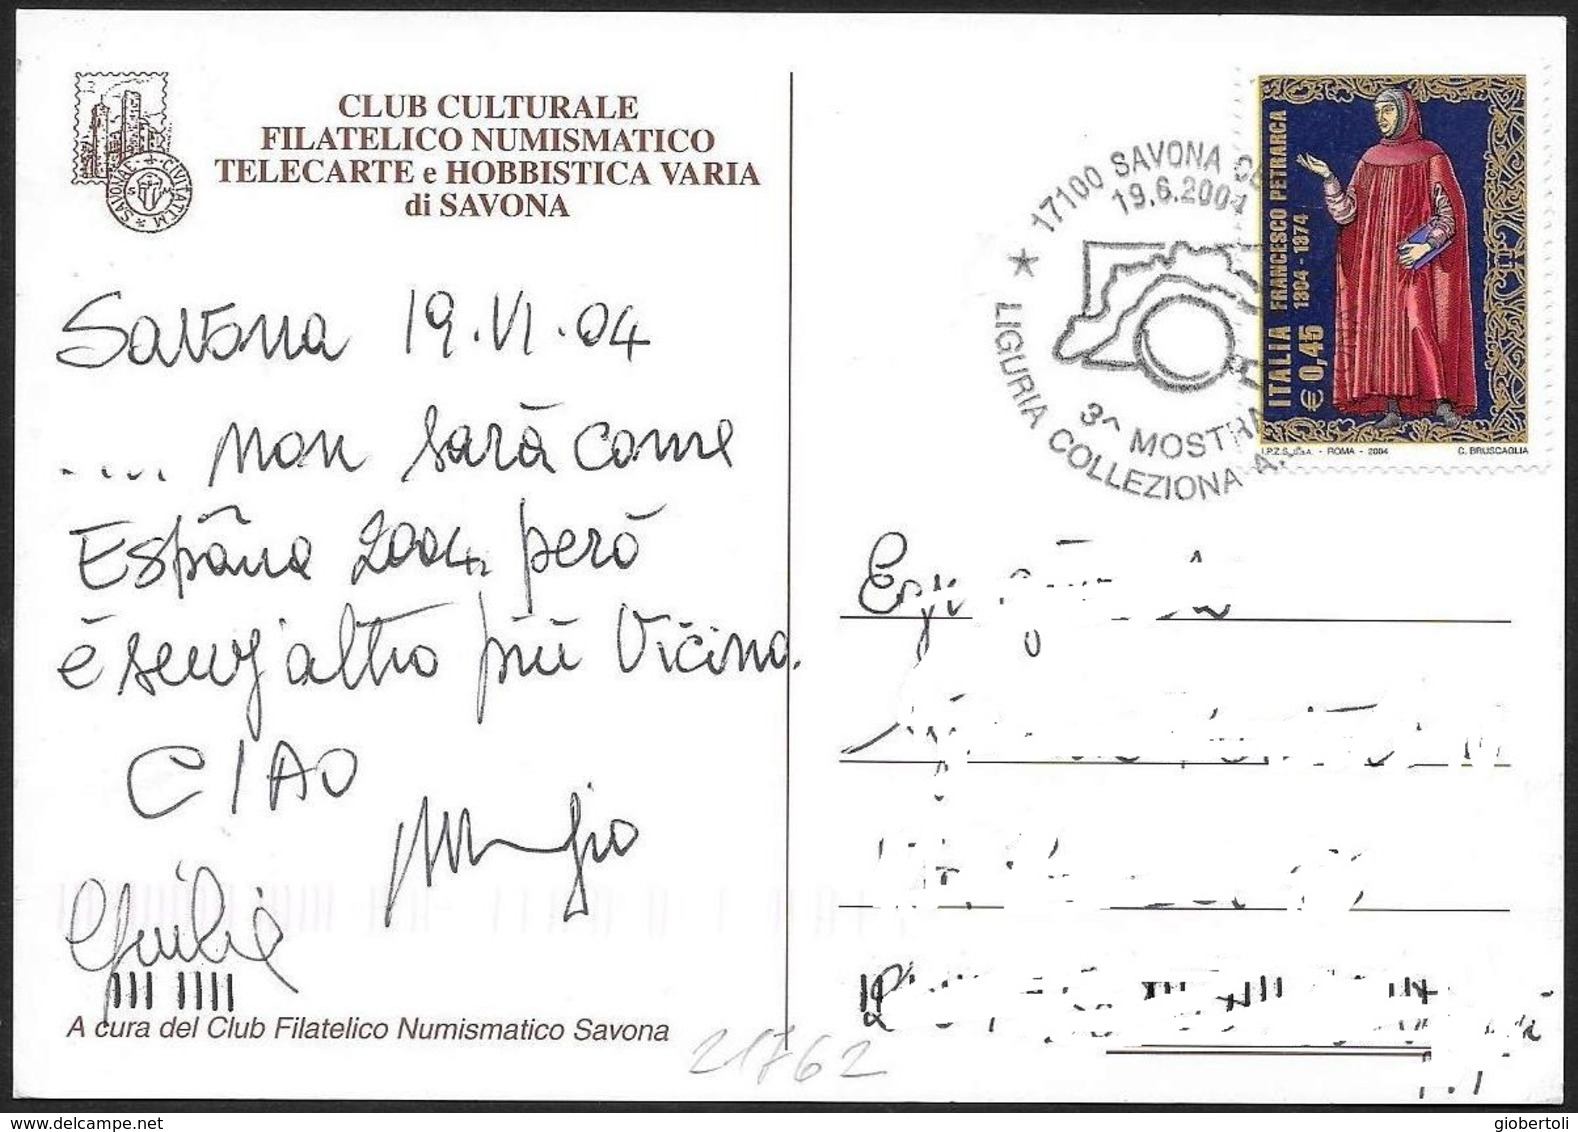 CLUB CULTURALE
FILATELICO NUMISMATICO
TELECARTE e HOBBISTICA VARIA
di SAVONA
SAVONAE CIVITATUM
S M
Savona 19.VI.04
.... non sarà come
España 2004, però
è senz'altro più vicina.
CIAO
Giulia
A cura del Club Filatelico Numismatico Savona
21762
17100 SAVONA
19.6.2004
3^ MOSTRA
LIGURIA COLLEZIONA
ITALIA FRANCESCO PETRARCA
€ 0,45 1304 - 1374
I.P.Z.S. S.p.A. - ROMA - 2004 C. BRUSCAGLIA
www.delcampe.net
giobertoli